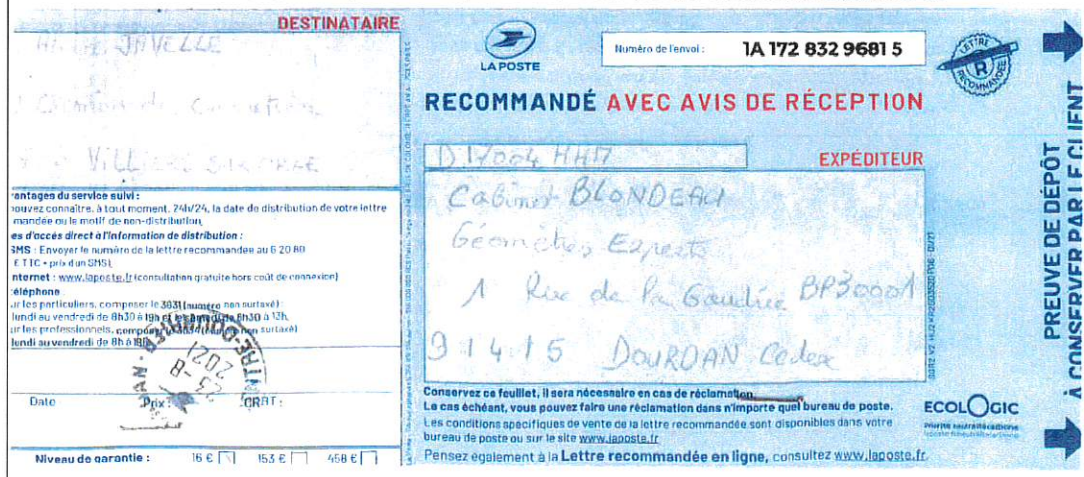 DESTINATAIRE
JAVELLE
Chemin de
VILLIERS SUR ORGE
antages du service suivi :
ouvez connaître, à tout moment, 24h/24, la date de distribution de votre lettre
mandée ou le motif de non-distribution.
es d'accès direct à l'information de distribution :
SMS : Envoyer le numéro de la lettre recommandée au 6 20 80
€ TTC + prix d'un SMS).
nternet : www.laposte.fr (consultation gratuite hors coût de connexion)
éléphone
ur les particuliers, composer le 3631 (numéro non surtaxé) :
lundi au vendredi de 8h30 à 19h et le samedi de 8h30 à 13h.
ur les professionnels, composer le 3634 (numéro non surtaxé)
lundi au vendredi de 8h à 19h.
23-8
2021
Date Prix : CRBT :
Niveau de garantie : 16 € 153 € 458 €
LA POSTE
Numéro de l'envoi : 1A 172 832 9681 5
LETTRE RECOMMANDÉE
R
RECOMMANDÉ AVEC AVIS DE RÉCEPTION
D17004 HHM
EXPÉDITEUR
Cabinet BLONDEAU
Géomètres Experts
1 Rue de la Gaudrée BP30001
91415 DOURDAN Cedex
Conservez ce feuillet, il sera nécessaire en cas de réclamation.
Le cas échéant, vous pouvez faire une réclamation dans n'importe quel bureau de poste.
Les conditions spécifiques de vente de la lettre recommandée sont disponibles dans votre
bureau de poste ou sur le site www.laposte.fr
Pensez également à la Lettre recommandée en ligne, consultez www.laposte.fr.
ECOLOGIC
PREUVE DE DÉPÔT
À CONSERVER PAR LE CLIENT